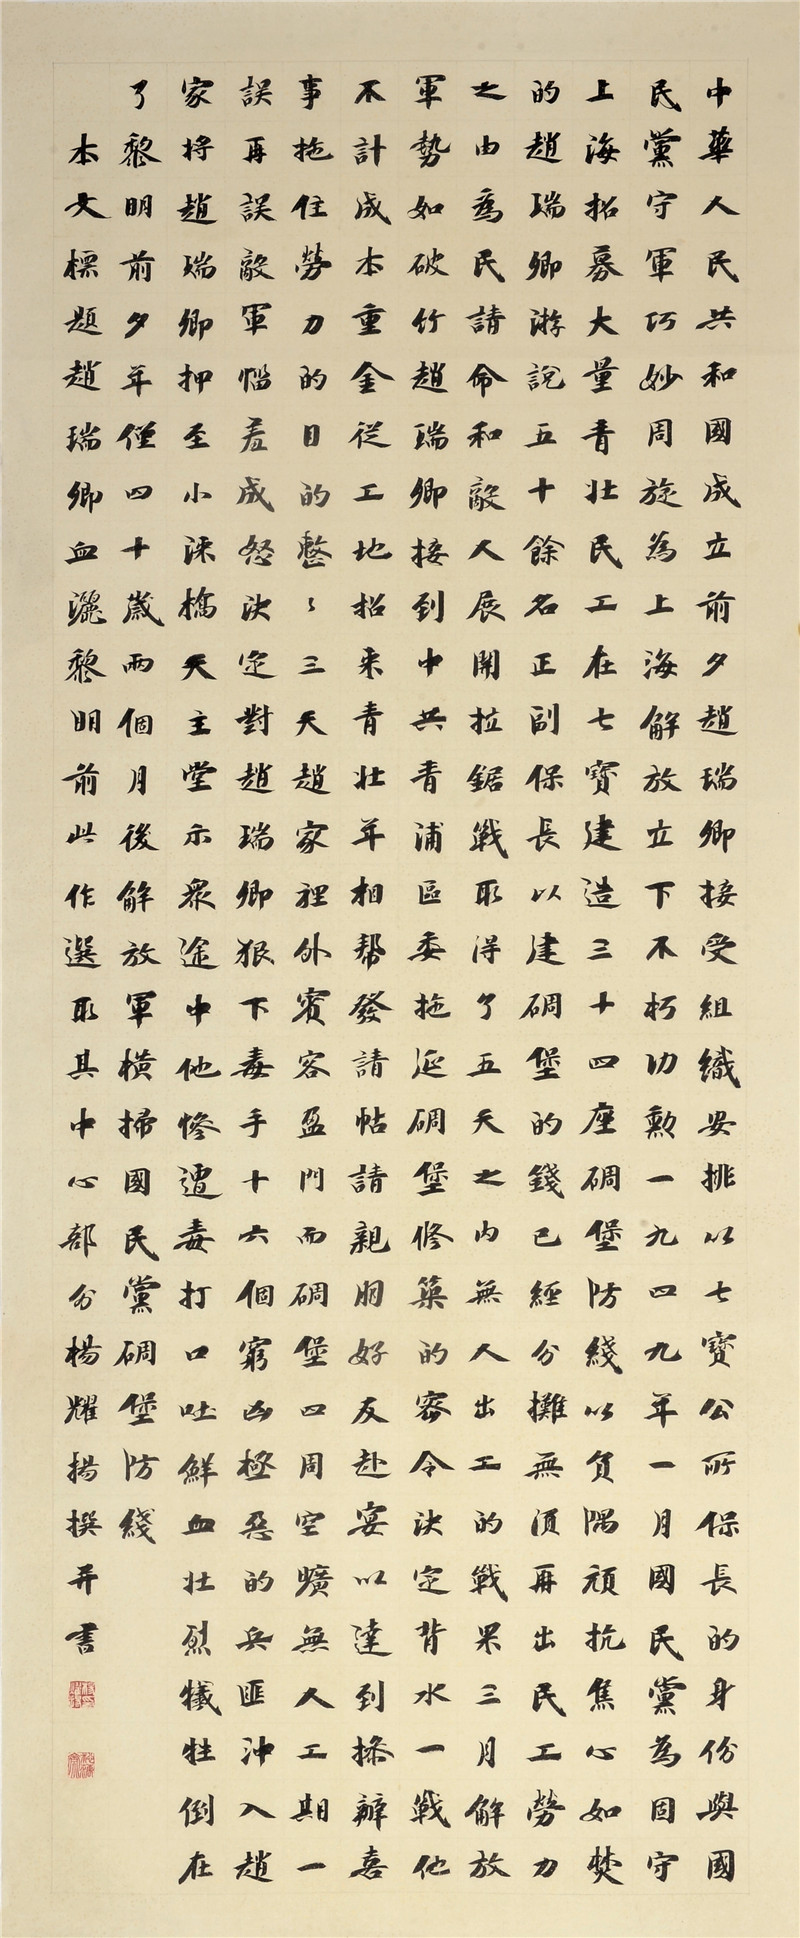 中華人民共和國成立前夕趙瑞卿接受組織安排以七寶公所保長的身份與國
民黨守軍巧妙周旋為上海解放立下不朽功勳一九四九年一月國民黨為固守
上海招募大量青壯民工在七寶建造三十四座碉堡防綫以負隅頑抗焦心如焚
的趙瑞卿游說五十餘名正副保長以建碉堡的錢已經分攤無須再出民工勞力
之由為民請命和敵人展開拉鋸戰取得了五天之內無人出工的戰果三月解放
軍勢如破竹趙瑞卿接到中共青浦區委拖延碉堡修築的密令決定背水一戰他
不計成本重金從工地招来青壯年相幇發請帖請親朋好友赴宴以達到操辦喜
事拖住勞力的目的整〻三天趙家裡外賓客盈門而碉堡四周空曠無人工期一
誤再誤敵軍惱羞成怒決定對趙瑞卿狠下毒手十六個窮凶極惡的兵匪沖入趙
家將趙瑞卿押至小淶橋天主堂示眾途中他慘遭毒打口吐鮮血壯烈犧牲倒在
了黎明前夕年僅四十歲兩個月後解放軍橫掃國民黨碉堡防綫
本文標題趙瑞卿血灑黎明前此作選取其中心部分楊耀揚撰并書